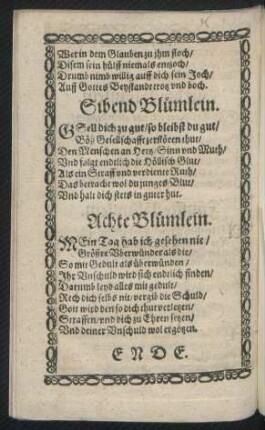 Wer in dem Glauben zu jhm floch/
Disem sein hülff niemals entzoch/
Drumb nimb willig auff dich sein Joch/
Auff Gottes Beystandt troz vnd boch.
Sibend Blümlein.
GSell dich zu gut/ so bleibst du gut/
Böß Gesellschafft zerstören thut/
Den Menschen an Herz/ Sinn vnd Muth/
Vnd folgt endtlich die Höllisch Glut/
Als ein Straff vnd verdiente Ruth/
Das betracht wol du junges Blut/
Vnd halt dich stets in guter hut.
Achte Blümlein.
MEin Tag hab ich gesehen nie/
Grössre Vberwünder als die/
So mit Gedult als überwünden/
Jhr Vnschuld wird sich endtlich finden/
Darumb leyd alles mit gedult/
Rech dich selbs nit/ verzüh die Schuld/
Gott wird den so dich thut verletzen/
Straffen/ vnd dich zu Ehren setzen/
Vnd deiner Vnschuld wol ergötzen.
E N D E.